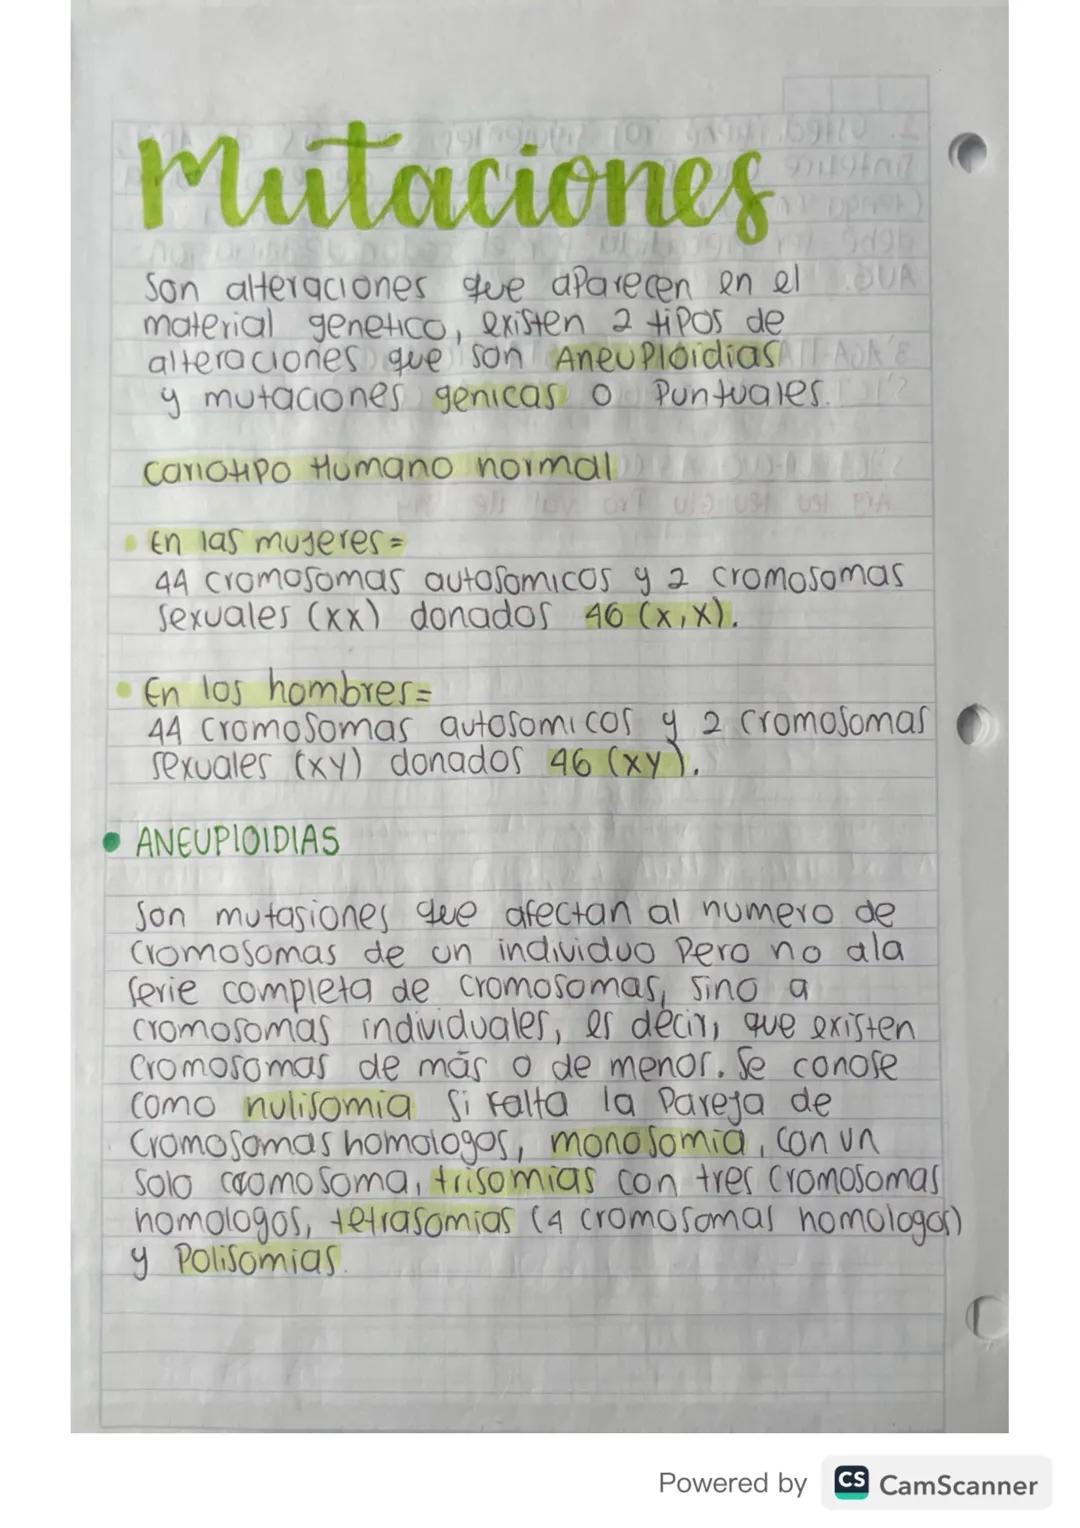 Mutaciones
Son alteraciones que aparecen en el
material genetico, existen 2 tipos de
alteraciones que son Aneuploidias
y mutaciones genicas o Puntuales.
cariotipo Humano normal
• En las mujeres=
44 cromosomas autosomicos y 2 cromosomas
sexuales (xx) donados 46 (x,x).
• En los hombres=
44 cromosomas autosomicos y 2 cromosomas
sexuales (xy) donados 46 (xy).
• ANEUPlOIDIAS
Son mutasiones que afectan al numero de
cromosomas de un individuo Pero no ala
serie completa de cromosomas, sino a
cromosomas individuales, es decir, que existen
cromosomas de más o de menos. Se conose
como nulisomia Si Falta la Pareja de
cromosomas homologos, monosomia, con un
solo cromosoma, trisomias con tres cromosomas
homologos, tetrasomias (4 cromosomas homologos)
y Polisomias.
Powered by CS CamScanner